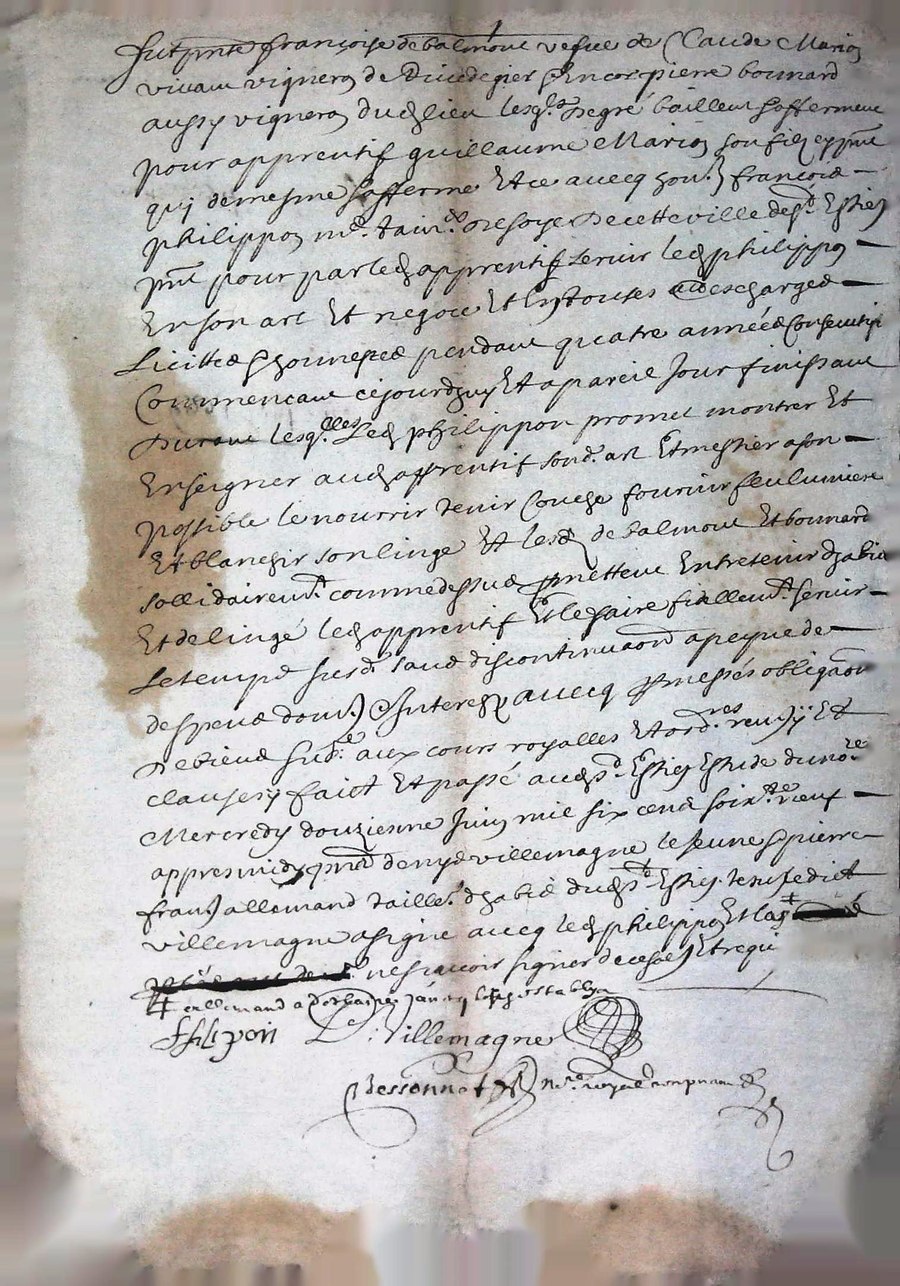 fut pnte françoise debalmont vefue de Claude Marion
vivant vigneron de & Encor pierre bonnard
aussy vigneron dud lieu lesqls de gré baillent & afferment
pour apprentif guillaume Marion son filz cy pnt
quy de mesme s'afferme Et ce avecq françois
philippon me. de soye de cette ville de St. Estien
pnt pour par led apprentif servir led philippon
En son art Et negoce Et En toutes charges
Licittes & honnestes pendant quatre années Consecutives
Commencant cejourdhuy Et a pareil Jour finissant
Durant lesqlles led philippon promet montrer Et
Enseigner aud apprentif sond. art Et mestier a son
possible le nourrir tenir couché fournir feu lumiere
Et blanchir son linge Et lesd de balmont Et bonnard
sollidairemt. comme dessus promettent Entretenir dhabis
Et de linge led apprentif Et le faire fidellemt. servir
Le temps susd. sans discontinuaon a peyne de
despens doms Interestz avecq promesses obligaon
De biens aux cours royalles Et ordres. renon Et
clauses faict Et passé aud St. Estien Estude du nore.
Mercredy douziesme Juin mil six cens soixte. neuf
appres midy pnts denys villemagne le jeune & pierre
frans allemand tailleur dhabis dud St. Estien lesd
villemagne a signé avecq led philippon Et las
ne scavoir signer de ce Et requis
allemand a
Philipon D. Villemagne
Bessonnet nore. royal